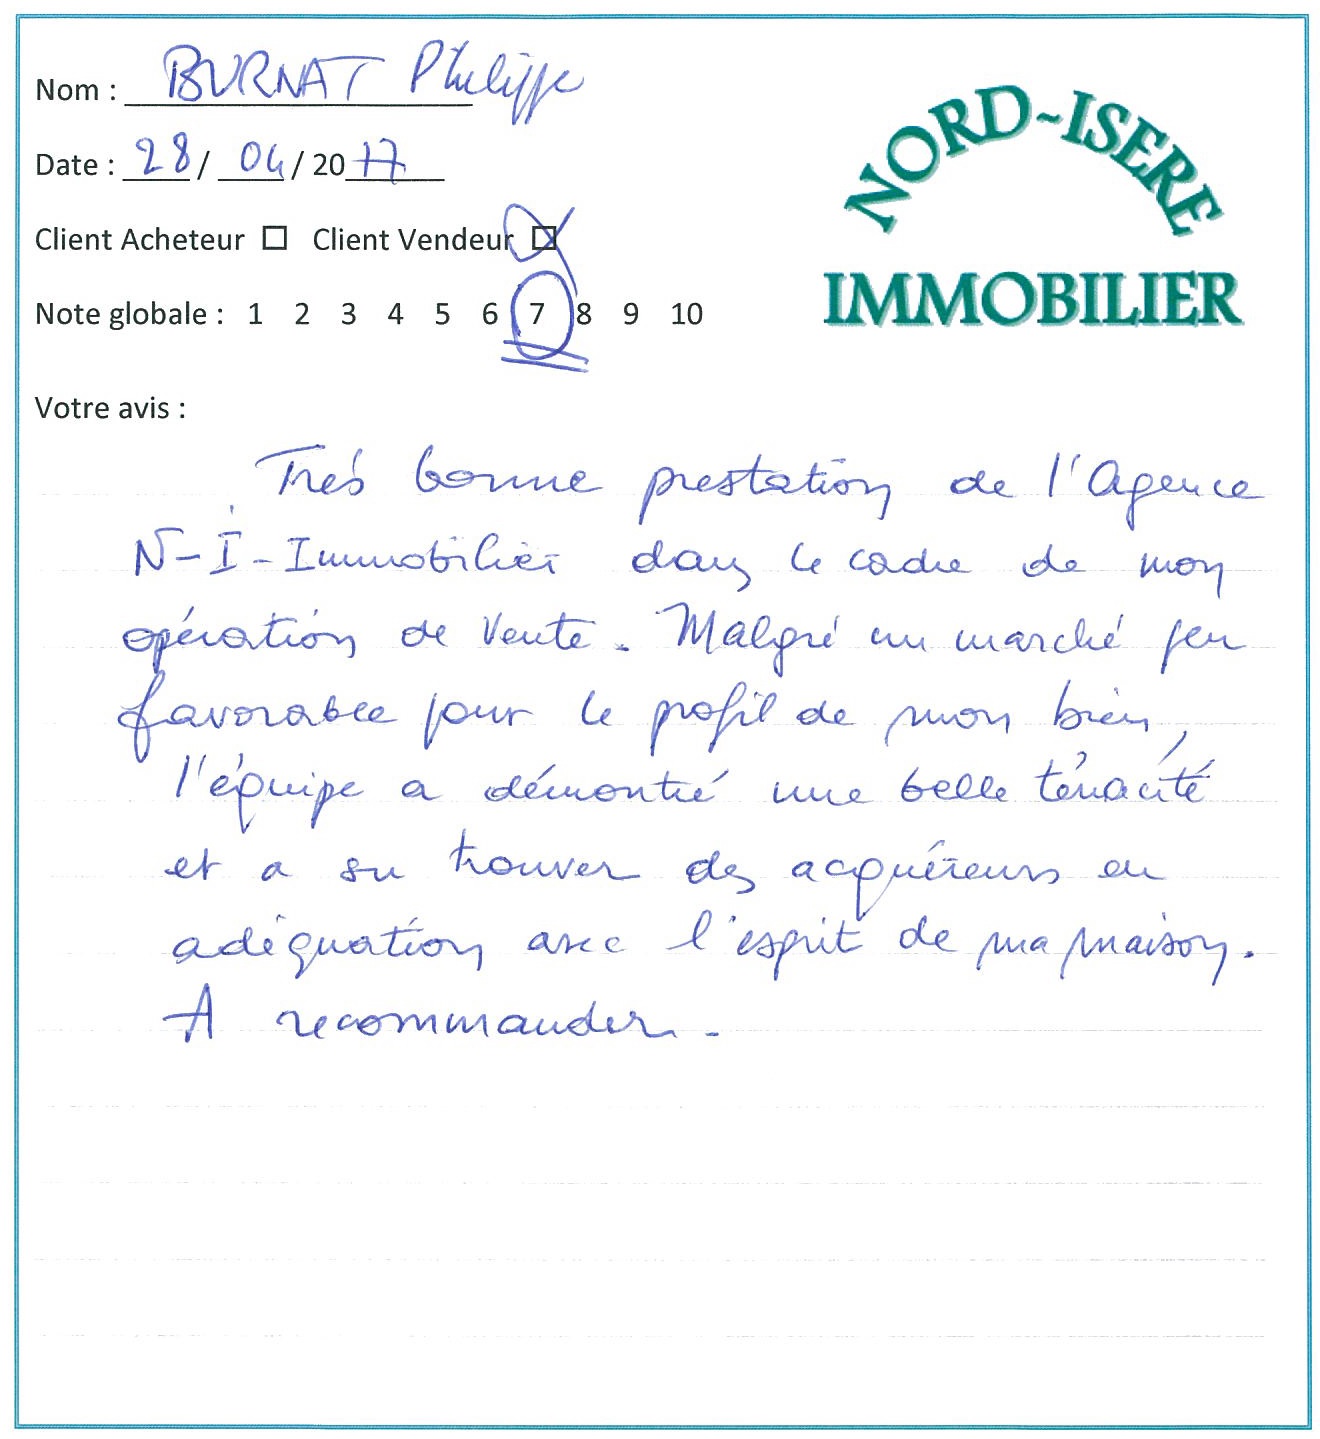 Nom : BURNAT Philippe
Date : 28 / 04 / 2017
Client Acheteur ☐ Client Vendeur ☒
Note globale : 1 2 3 4 5 6 7 8 9 10
NORD-ISERE
IMMOBILIER
Votre avis :
Très bonne prestation de l'Agence
N-I-Immobilier dans le cadre de mon
opération de vente. Malgré un marché peu
favorable pour le profil de mon bien,
l'équipe a démontré une belle ténacité
et a su trouver des acquéreurs en
adéquation avec l'esprit de ma maison.
A recommander.